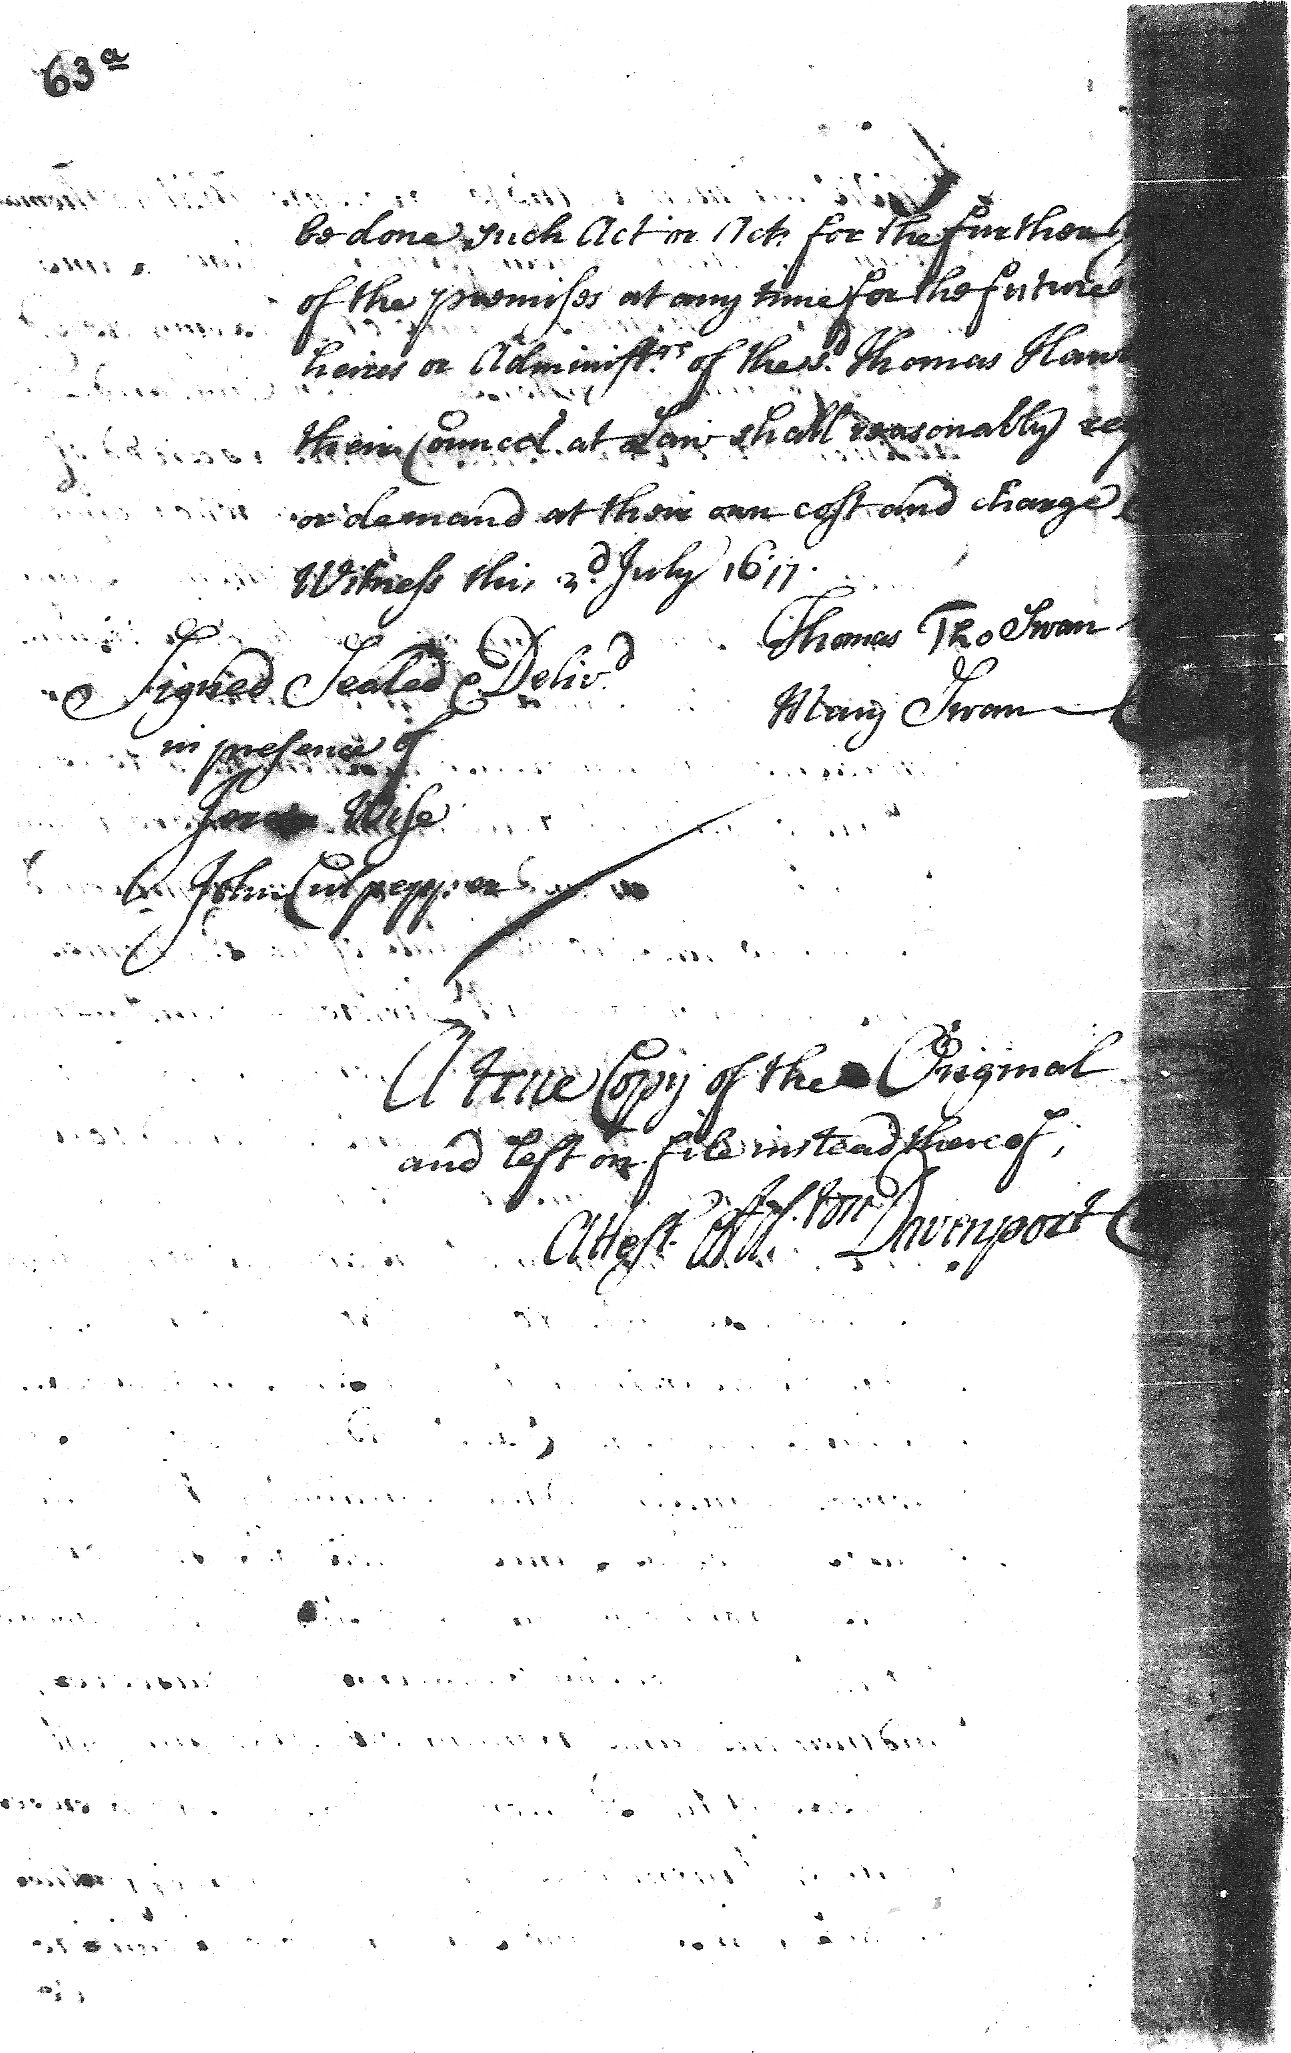 63a
be done such Act or Acts for the further
of the premises at any time for the future
heires or Administrs. of the sd. Thomas Haw
their Councel at Law shall reasonably req
or demand at their own cost and charge
Witness this 2d. July 1677.
Thomas Tho Swan
Signed Sealed & Delivd.
Mary Swan
in presence of
Wise
John Culpepper
A true Copy of the Original
and left on file instead thereof,
Attest. Davenport